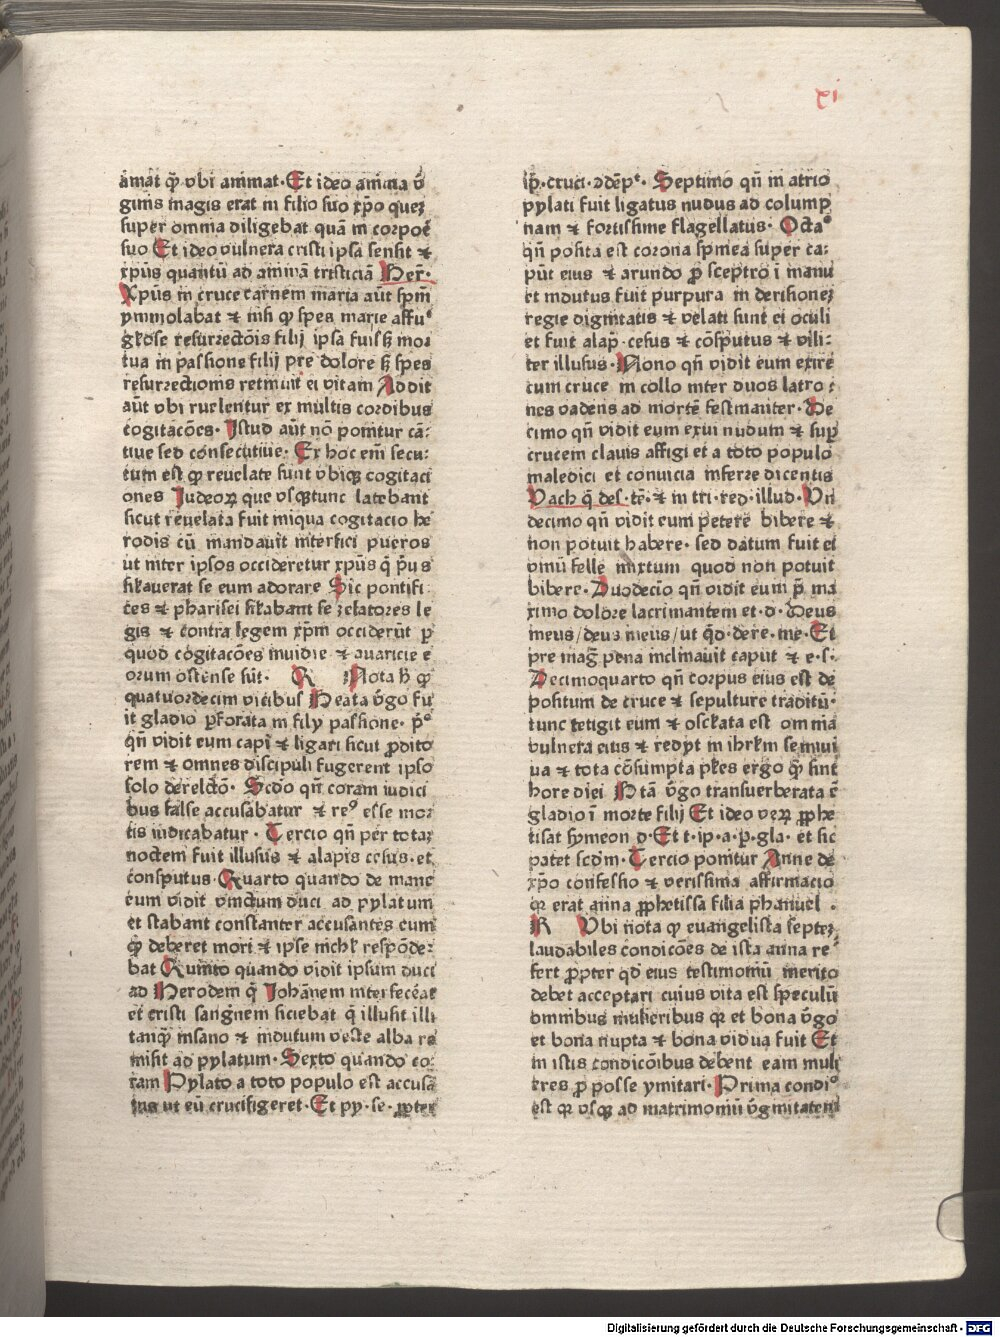 xi
amat q̄ꝫ vbi animat. Et ideo anima v̄
ginis magis erat in filio suo xp̄o queꝫ
super omnia diligebat quā in corpoē
suo Et ideo vulnera cristi ipsa sensit ⁊
xp̄us quantū ad animā tristiciā Ber̄.
Xp̄us in cruce carnem maria aūt sp̄m
ymmolabat ⁊ nisi ꝙ spes marie affuꝰ
gl̄ose resurrectōis filij ipsa fuisꝫ mor
tua in passione filij pre dolore sꝫ spes
resurrectionis retinuit ei vitam Addit
aūt vbi ruelentur ex multis cordibus
cogitacōes. Istud aūt nō ponitur cā:
tiue sed consecutiue. Ex hoc eni secu:
tum est ꝙ reuelate sunt vbiqꝫ cogitaci
ones Iudeoꝝ que vsqꝫtunc latebant
sicut reuelata fuit iniqua cogitacio he
rodis cū mandauit interfici pueros
ut inter ipsos occideretur xp̄us q̄ p̄us
sil̄auerat se eum adorare Sic pontifi:
ces ⁊ pharisei sil̄abant se zelatores le
gis ⁊ contra legem xp̄m occiderūt ꝑ
quod cogitacōes inuidie ⁊ auaricie e
orum ostense sūt. R Nota h̄ ꝙ
quatuordecim vicibus Beata v̄go fu
it gladio ꝑforata in filij passione. p̄ᵒ
qn̄ vidit eum capi ⁊ ligari sicut ꝓdito
rem ⁊ omnes discipuli fugerent ipso
solo derelcō. Scd̄o qn̄ coram iudici
bus false accusabatur ⁊ reꝰ esse mor
tis iudicabatur. Tercio qn̄ per totaꝫ
noctem fuit illusus ⁊ alapis cesus. et
consputus. Quarto quando de mane
eum vidit vinctum duci ad pylatum
et stabant constanter accusantes eum
ꝙ deberet mori ⁊ ipse nichil respōde:
bat Quinto quando vidit ipsum duci
ad Herodem q̄ Johānem interfecerat
et cristi sangn̄em siciebat q̄ illusit illi
tanqꝫ insano ⁊ indutum veste alba re
misit ad pylatum. Sexto quando co:
ram Pylato a toto populo est accusa
tus ut eū crucifigeret. Et py. se. ꝓpter
ip̄. cruci. ↄdēpᵗ. Septimo qn̄ in atrio
pylati fuit ligatus nudus ad columꝑ
nam ⁊ fortissime flagellatus. Octaᵒ
qn̄ posita est corona spinea super ca:
put eius ⁊ arundo ꝓ sceptro ī manu
et indutus fuit purpura in derisioneꝫ
regie dignitatis ⁊ velati sunt ei oculi
et fuit alap̄. cesus ⁊ cōsputus ⁊ vili:
ter illusus. Nono qn̄ vidit eum exire
cum cruce in collo inter duos latro:
nes vadens ad mortē festinanter. De
cimo qn̄ vidit eum exui nudum ⁊ suꝑ
crucem clauis affigi et a toto populo
maledici et conuicia inferre dicentis
Vach q̄ des. tē. ⁊ in tri. red. illud. Vn
decimo qn̄ vidit eum petere bibere ⁊
non potuit habere. sed datum fuit ei
vinū felle mixtum quod non potuit
bibere. Duodecīo qn̄ vidit eum p̄ ma
ximo dolore lacrimantem et. d. Deus
meus/deus meus/ut q̄d. dere. me. Et
pre mag̃ pena inclinauit caput ⁊ e. s.
Decimoquarto qn̄ corpus eius est de
positum de cruce ⁊ sepulture traditū.
tunc tetigit eum ⁊ osclata est omnia
vulnera eius ⁊ redijt in ihrl̄m semiui
ua ⁊ tota cōsumpta pl̄es ergo q̄ꝫ sint
hore diei Btā v̄go transuerberata ē
gladio ī morte filij Et ideo veꝝ ꝓphe
tisat symeon d. Et t. ip. a. p. gla. et sic
patet scd̄m. Tercio ponitur Anne de
xp̄o confessio ⁊ verissima affirmacio
qꝛ erat anna ꝓphetissa filia phanuel.
R Vbi nota ꝙ euangelista septeꝫ
laudabiles condicōes de ista anna re
fert ꝓpter qd̄ eius testimoniū merito
debet acceptari cuius vita est speculū
omnibus mulieribus qꝛ et bona v̄go
et bona nupta ⁊ bona vidua fuit Et
in istis condicōibus debent eam muli
eres ꝓ posse ymitari. Prima condiᵒ
est qꝛ vsqꝫ ad matrimoniū v̄gnitatem
Digitalisierung gefördert durch die Deutsche Forschungsgemeinschaft - DFG